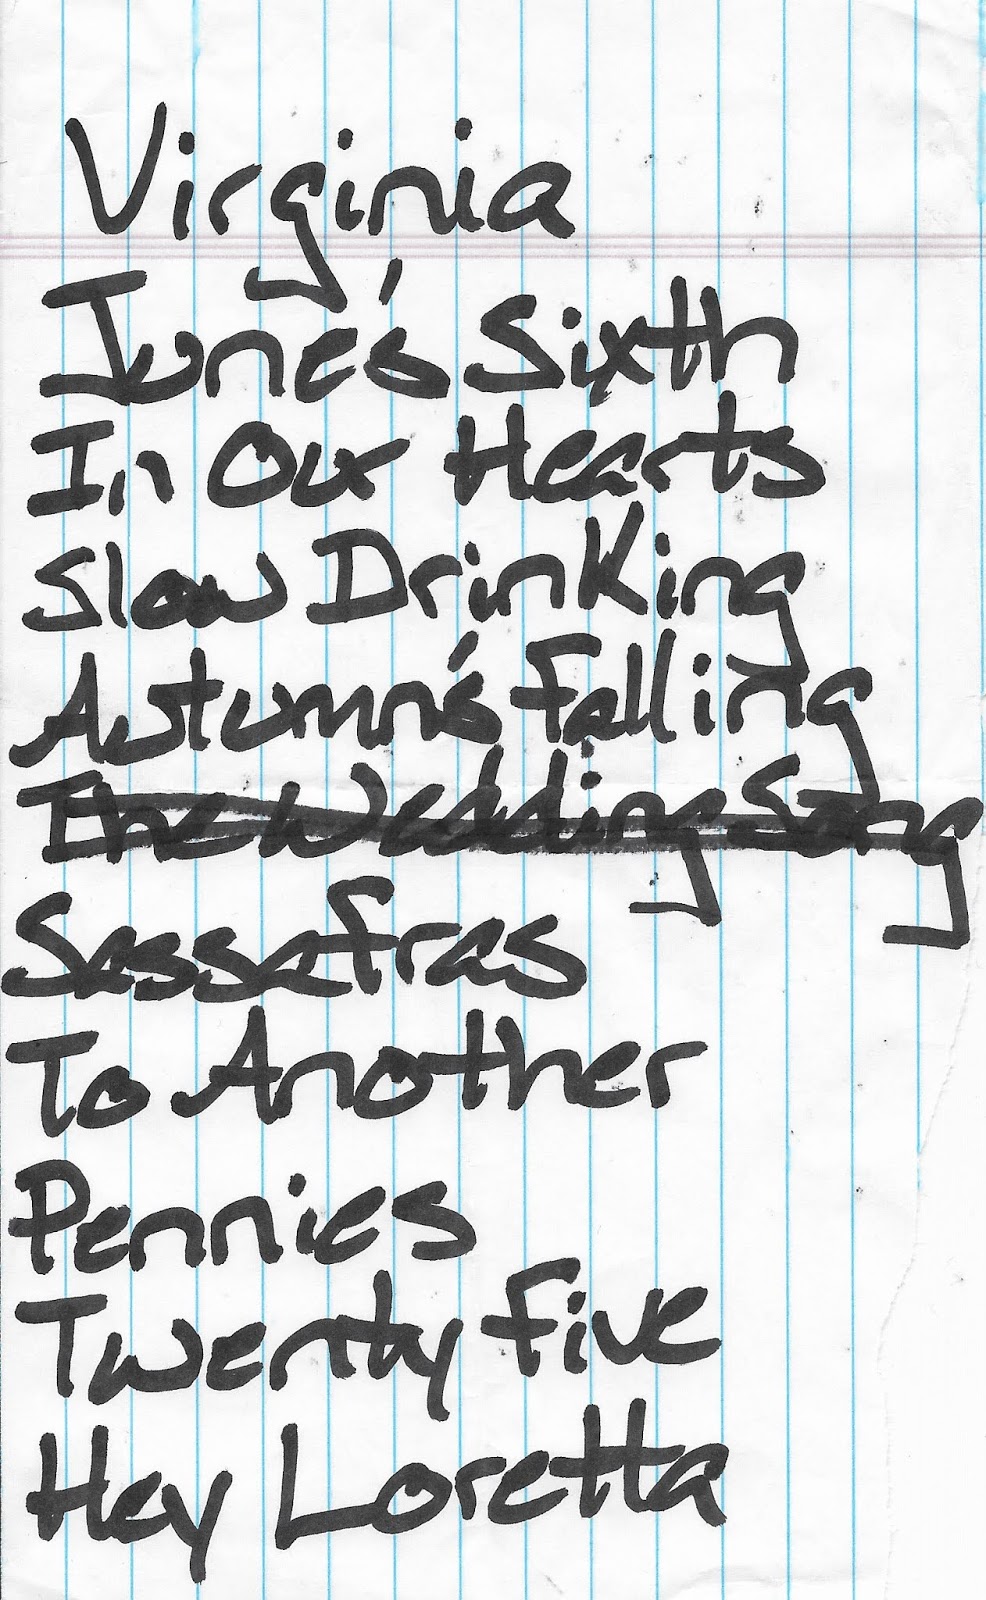 Virginia
June's Sixth
In Our Hearts
Slow Drinking
Autumn's Falling
The Wedding Song
Sassafras
To Another
Pennies
Twenty Five
Hey Loretta